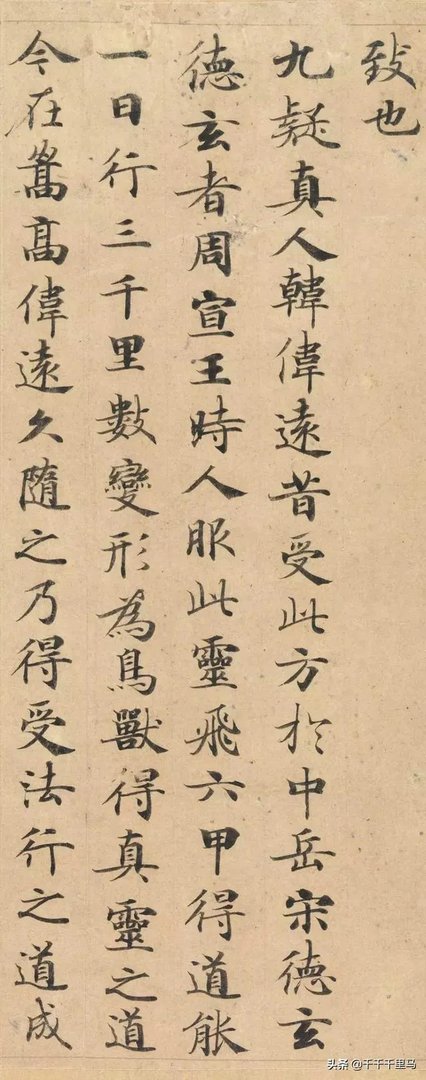 致也
九疑真人韓偉遠昔受此方於中岳宋德玄
德玄者周宣王時人服此靈飛六甲得道能
一日行三千里數變形為鳥獸得真靈之道
今在嵩高偉遠久隨之乃得受法行之道成
头条 @千千千里马